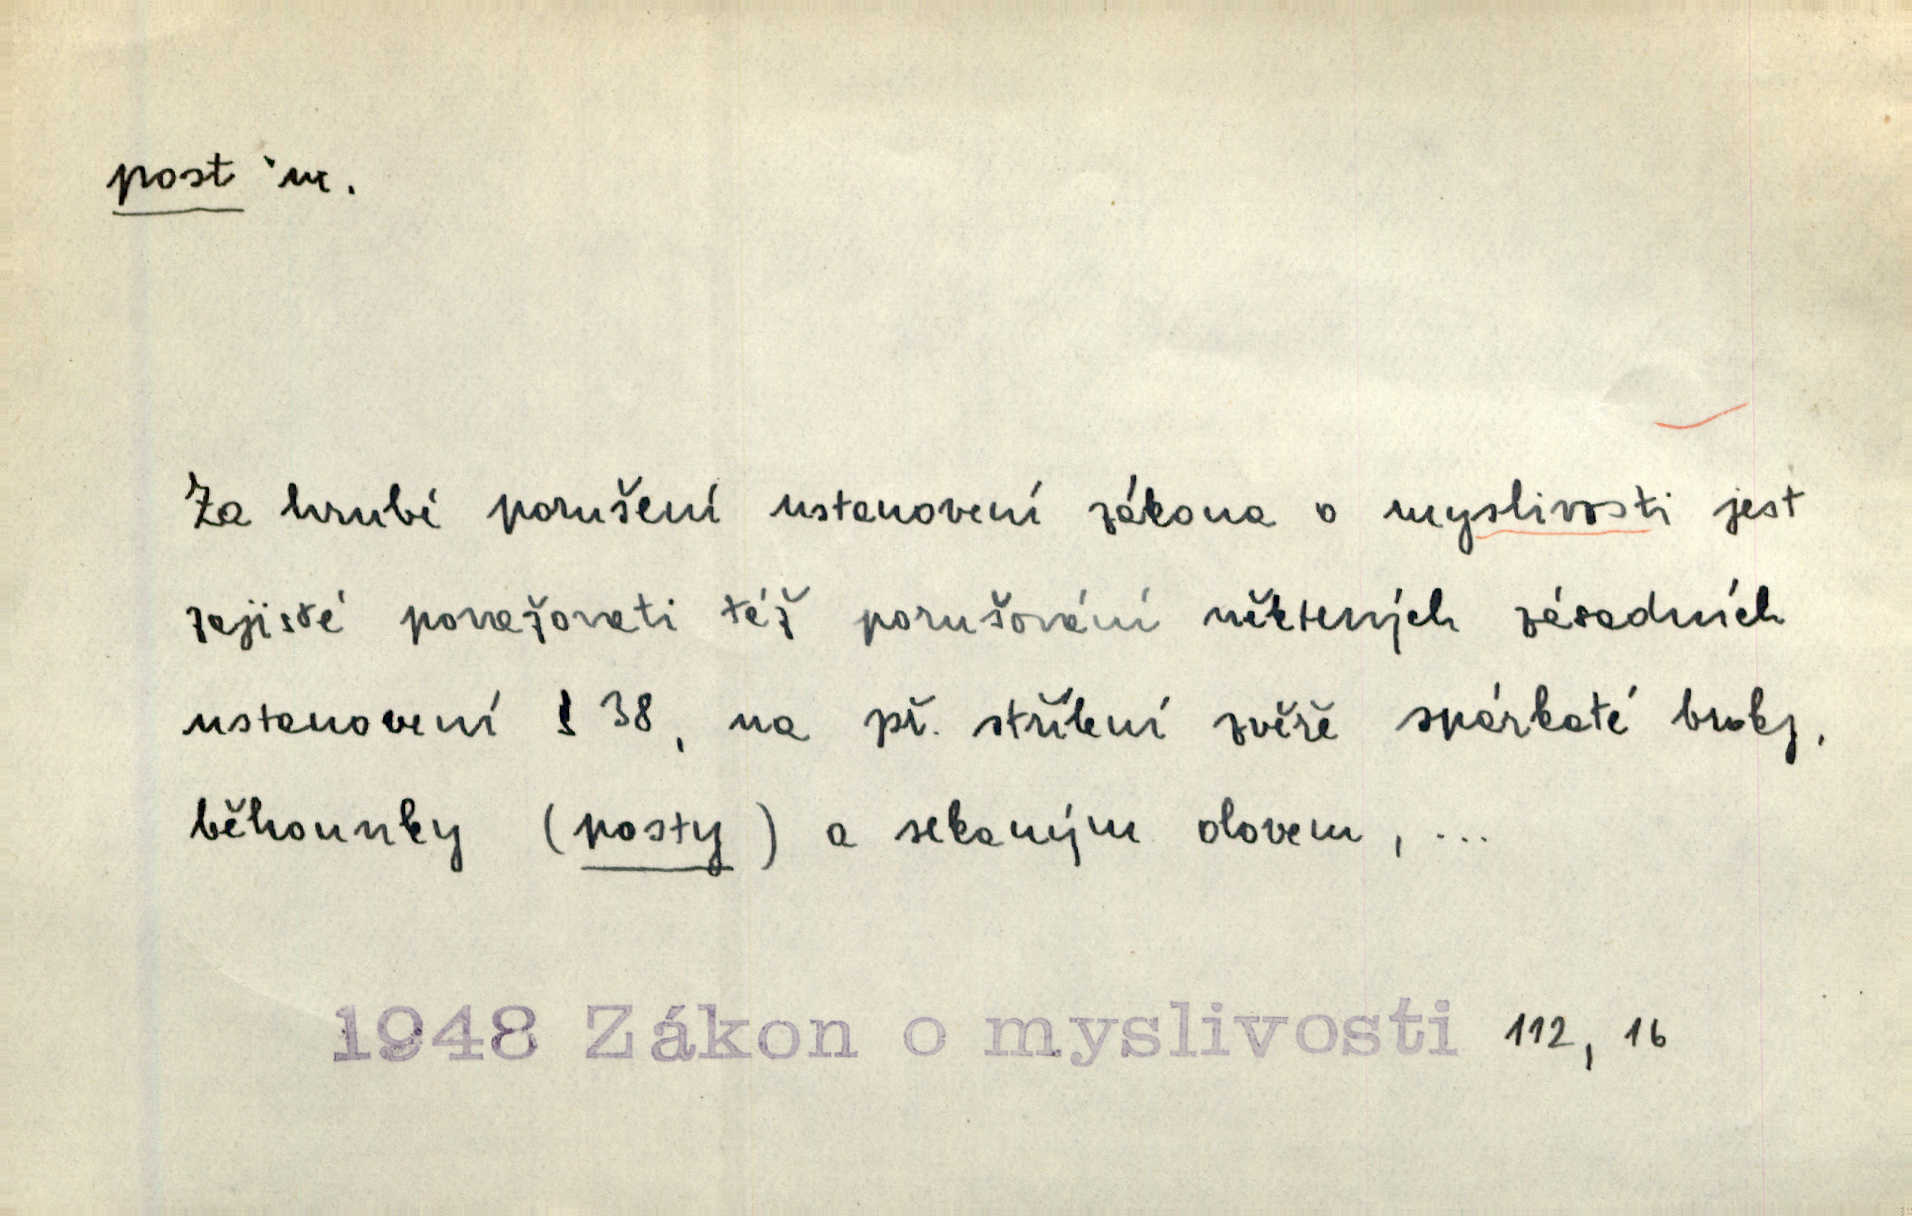 post m.
Za hrubé porušení ustanovení zákona o myslivosti jest
zajisté považovati též porušování některých zásadních
ustanovení § 38, na př. střílení zvěře spárkaté broky,
běhounky (posty) a sekaným olovem, ...
1948 Zákon o myslivosti 112, 16